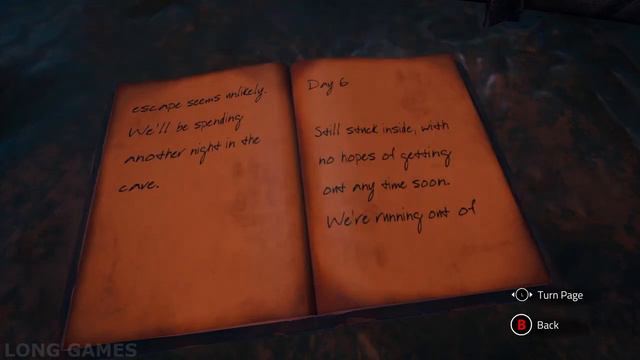 escape seems unlikely.
We'll be spending
another night in the
cave.
Day 6
Still stuck inside, with
no hopes of getting
out any time soon.
We're running out of
L
Turn Page
B
Back
LONG GAMES